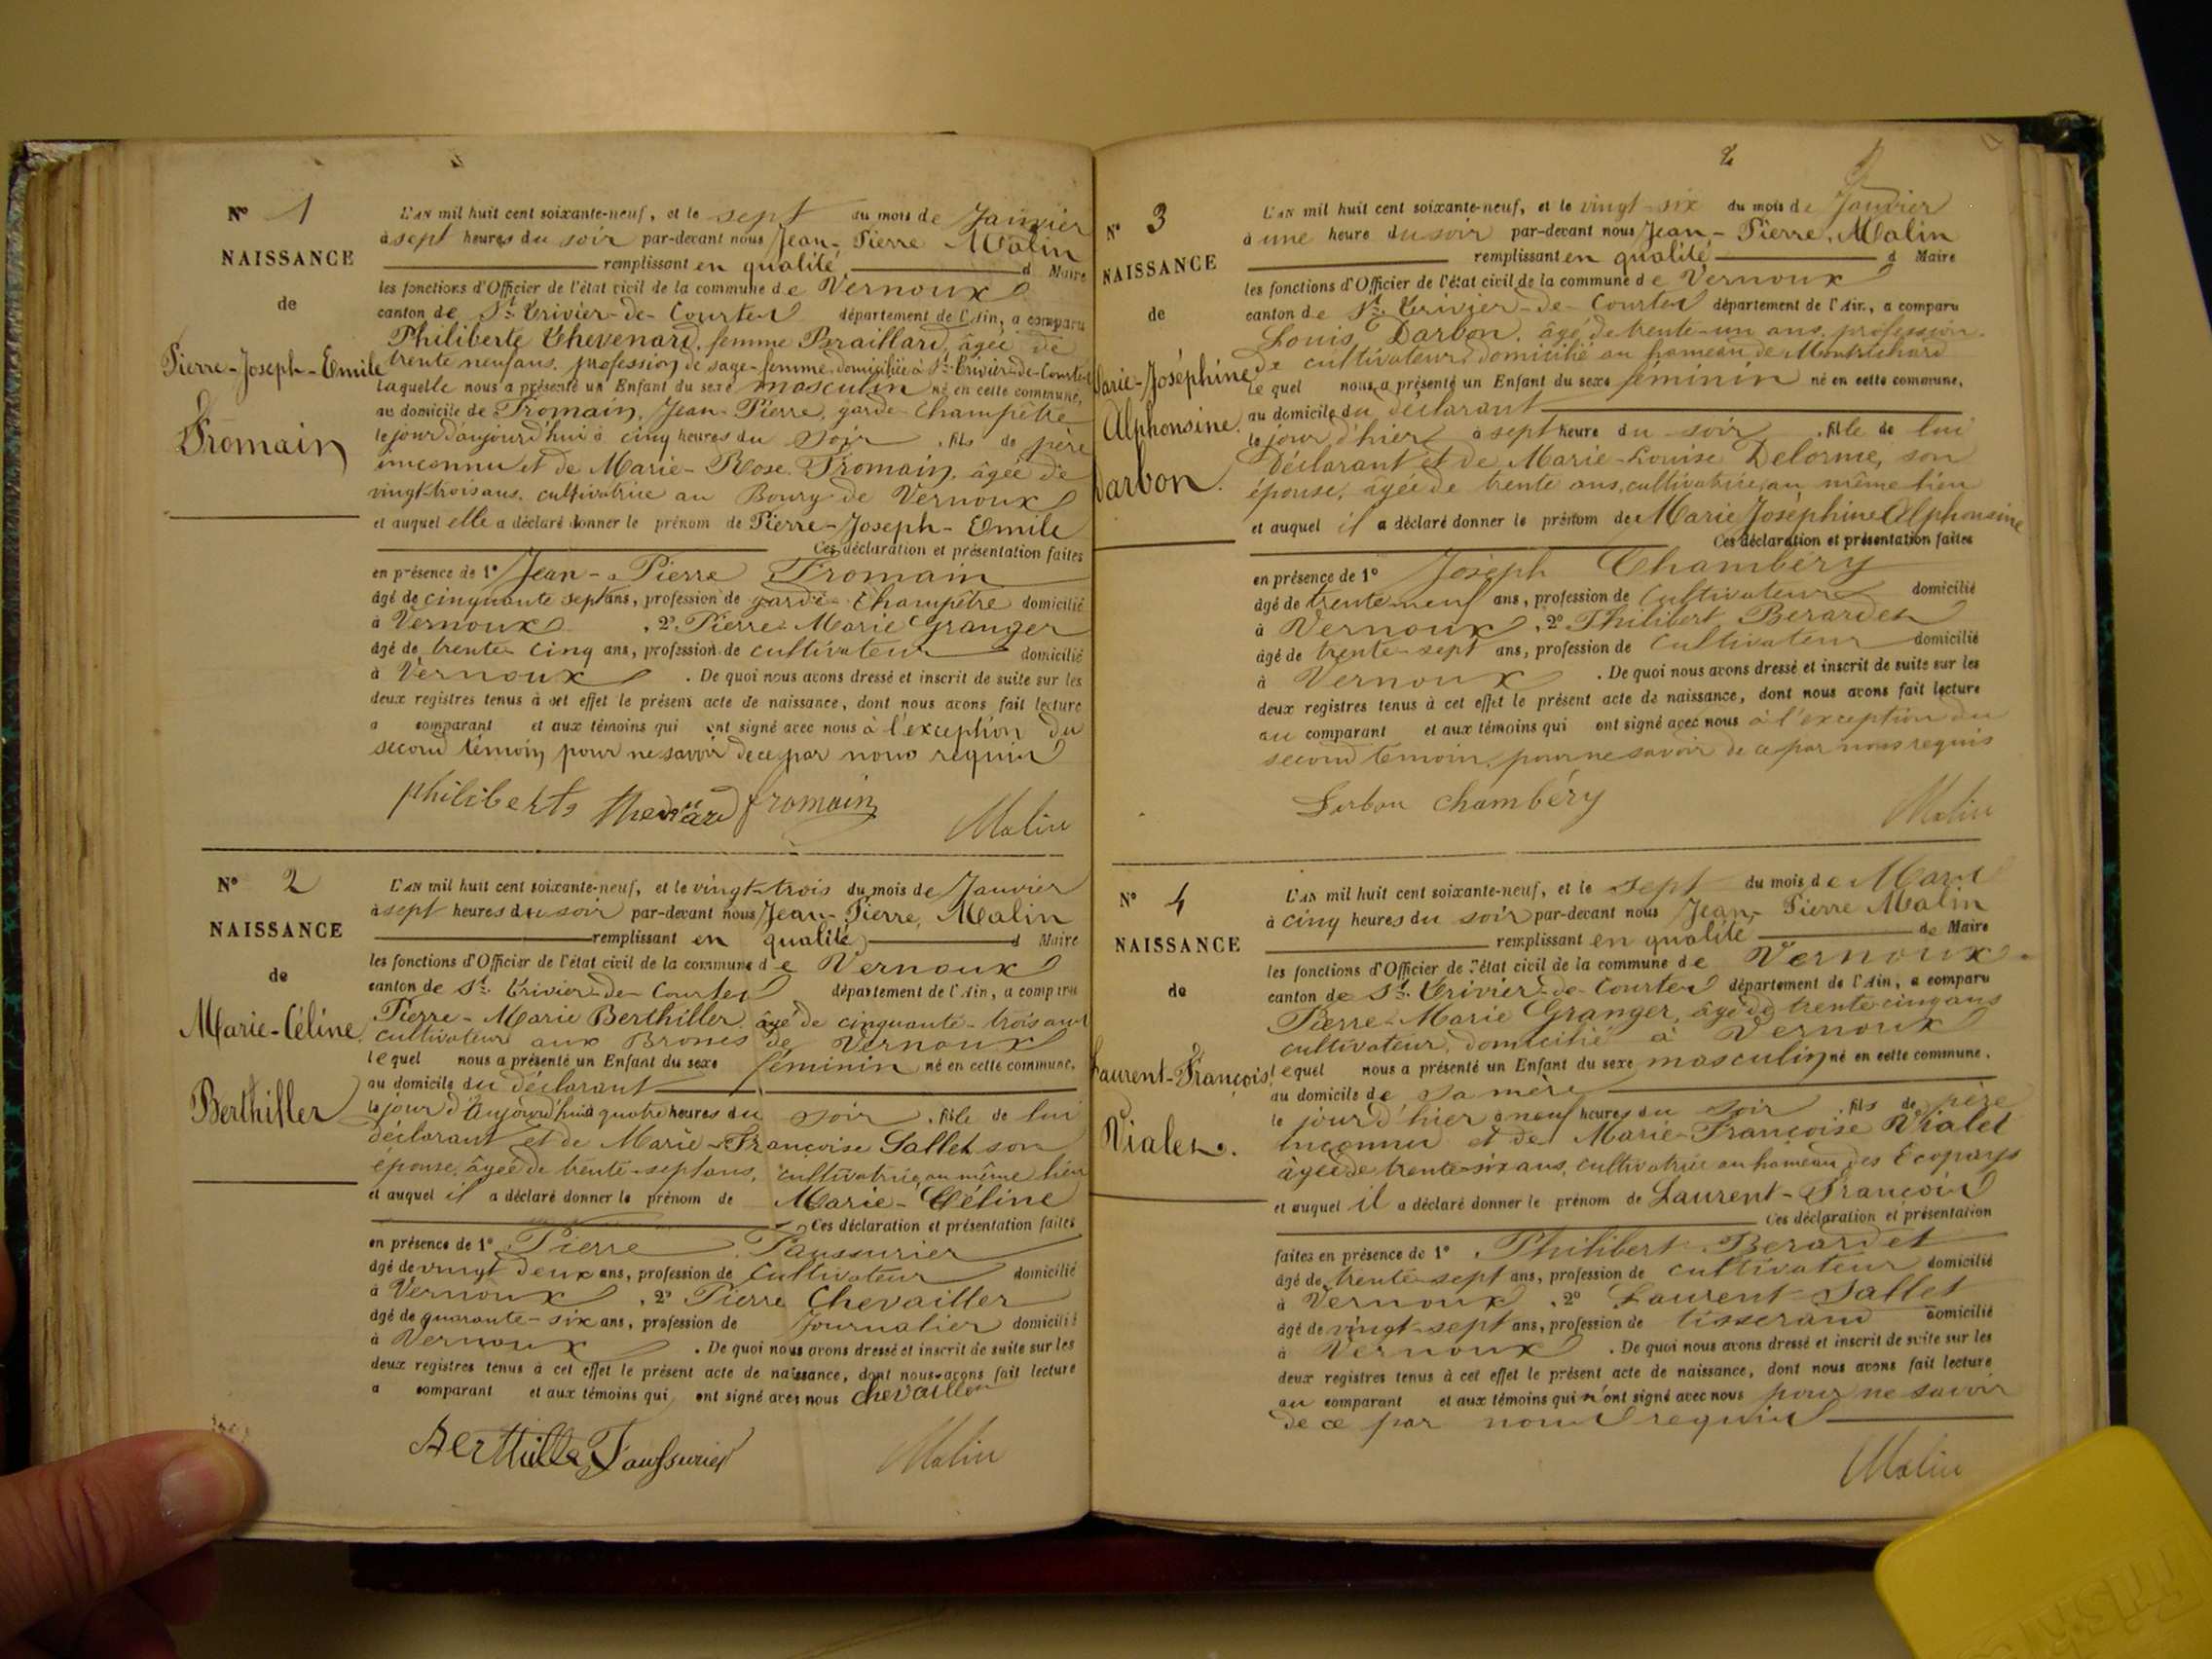 Nº 1
NAISSANCE
de
Pierre-Joseph-Emile
Fromain
L'AN mil huit cent soixante-neuf, et le sept du mois de Janvier
à sept heures du soir par-devant nous Jean-Pierre Malin
remplissant en qualité d Maire
les fonctions d'Officier de l'état civil de la commune de Vernoux
canton de St. Trivier-de-Courtes département de l'Ain, a comparu
Philiberte Thevenard, femme Braillard, âgée de
trente neuf ans, profession de sage-femme, domiciliée à St. Trivier-de-Courtes
laquelle nous a présenté un Enfant du sexe masculin né en cette commune,
au domicile de Fromain, Jean-Pierre, garde-champêtre
le jour d'aujourd'hui à cinq heures du soir, fils de père
inconnu et de Marie-Rose Fromain, âgée de
vingt-trois ans, cultivatrice au Bourg de Vernoux
et auquel elle a déclaré donner le prénom de Pierre-Joseph-Emile
Ces déclaration et présentation faites
en présence de 1º Jean-Pierre Fromain
âgé de cinquante sept ans, profession de garde-champêtre domicilié
à Vernoux, 2º Pierre-Marie Granger
âgé de trente-cinq ans, profession de cultivateur domicilié
à Vernoux. De quoi nous avons dressé et inscrit de suite sur les
deux registres tenus à cet effet le présent acte de naissance, dont nous avons fait lecture
a comparant et aux témoins qui ont signé avec nous à l'exception du
second témoin, pour ne savoir de ce par nous requis
philiberte thevenard fromain Malin
Nº 2
NAISSANCE
de
Marie-Céline
Berthiller
L'AN mil huit cent soixante-neuf, et le vingt-trois du mois de Janvier
à sept heures du soir par-devant nous Jean-Pierre, Malin
remplissant en qualité d Maire
les fonctions d'Officier de l'état civil de la commune de Vernoux
canton de St. Trivier-de-Courtes département de l'Ain, a comparu
Pierre-Marie Berthiller âgé de cinquante-trois ans
cultivateur aux Brones de Vernoux
lequel nous a présenté un Enfant du sexe féminin né en cette commune,
au domicile du déclarant
le jour d'aujourd'hui à quatre heures du soir, fille de lui
déclarant et de Marie-Françoise Sallet son
épouse, âgée de trente-sept ans, cultivatrice, au même lieu
et auquel il a déclaré donner le prénom de Marie-Céline
Ces déclaration et présentation faites
en présence de 1º Pierre Faussurier
âgé de vingt deux ans, profession de Cultivateur domicilié
à Vernoux, 2º Pierre Chevailler
âgé de quarante-six ans, profession de Journalier domicilié
à Vernoux. De quoi nous avons dressé et inscrit de suite sur les
deux registres tenus à cet effet le présent acte de naissance, dont nous avons fait lecture
a comparant et aux témoins qui ont signé avec nous chevailler
Berthiller Faussurier Malin
2
Nº 3
NAISSANCE
de
Marie-Joséphine
Alphonsine
Darbon.
L'AN mil huit cent soixante-neuf, et le vingt-six du mois de Janvier
à une heure du soir par-devant nous Jean-Pierre, Malin
remplissant en qualité d Maire
les fonctions d'Officier de l'état civil de la commune de Vernoux
canton de St. Trivier-de-Courtes département de l'Ain, a comparu
Louis Darbon, âgé de trente-un ans, profession
de cultivateur domicilié au hameau de Montrichard
lequel nous a présenté un Enfant du sexe féminin né en cette commune,
au domicile du déclarant
le jour d'hier à sept heure du soir, fille de lui
Déclarant et de Marie-Louise Delorme, son
épouse, âgée de trente ans, cultivatrice, au même lieu
et auquel il a déclaré donner le prénom de Marie Joséphine Alphonsine
Ces déclaration et présentation faites
en présence de 1º Joseph Chambéry
âgé de trente-neuf ans, profession de Cultivateur domicilié
à Vernoux, 2º Philibert Berardet
âgé de trente-sept ans, profession de Cultivateur domicilié
à Vernoux. De quoi nous avons dressé et inscrit de suite sur les
deux registres tenus à cet effet le présent acte de naissance, dont nous avons fait lecture
au comparant et aux témoins qui ont signé avec nous à l'exception du
second témoin, pour ne savoir de ce par nous requis
Darbon chambéry Malin
Nº 4
NAISSANCE
de
Laurent-François
Vialet.
L'AN mil huit cent soixante-neuf, et le sept du mois de Mars
à cinq heures du soir par-devant nous Jean-Pierre Malin
remplissant en qualité de Maire
les fonctions d'Officier de l'état civil de la commune de Vernoux
canton de St. Trivier-de-Courtes département de l'Ain, a comparu
Pierre-Marie Granger, âgé de trente-cinq ans
cultivateur, domicilié à Vernoux
lequel nous a présenté un Enfant du sexe masculin né en cette commune,
au domicile de sa mère
le jour d'hier à neuf heures du soir, fils de père
inconnu et de Marie-Françoise Vialet
âgée de trente-six ans, cultivatrice au hameau des Ecoparys
et auquel il a déclaré donner le prénom de Laurent-François
Ces déclaration et présentation
faites en présence de 1º Philibert Berardet
âgé de trente-sept ans, profession de cultivateur domicilié
à Vernoux, 2º Laurent Sallet
âgé de vingt-sept ans, profession de tisserand domicilié
à Vernoux. De quoi nous avons dressé et inscrit de suite sur les
deux registres tenus à cet effet le présent acte de naissance, dont nous avons fait lecture
au comparant et aux témoins qui n'ont signé avec nous pour ne savoir
de ce par nous requis
Malin